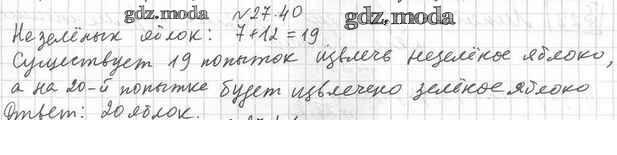 gdz.moda №27.40 gdz.moda
Не зелёных яблок: 7+12=19
Существует 19 попыток извлечь незелёное яблоко,
а на 20-й попытке будет извлечено зелёное яблоко
Ответ: 20 яблок.